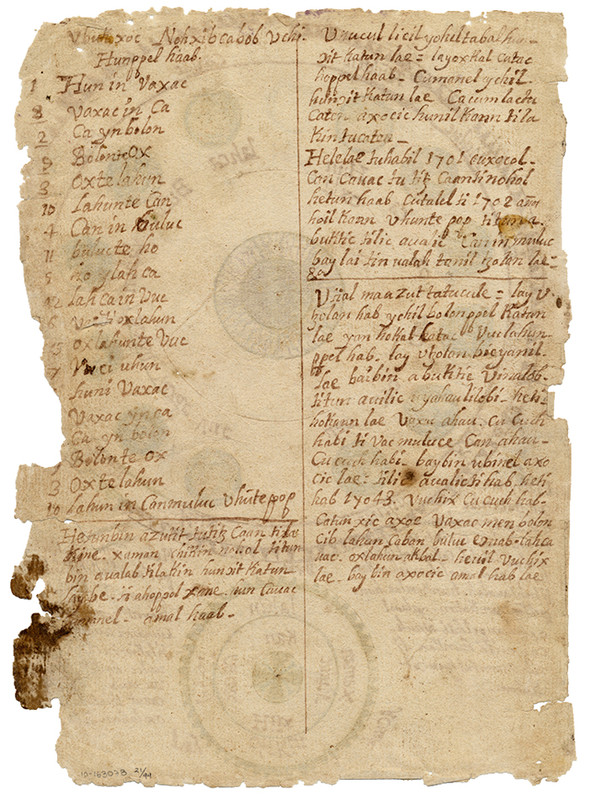 Vbutoxoc Nohxibcabob Vchi.
Hunppel haab.
1 Hun in Vaxac
8 Vaxac in Ca
2 Ca yn bolon
9 Bolonte Ox
3 Oxtelahun
10 Lahunte Can
4 Can in buluc
11 buluete ho
5 ho y lah ca
lah ca in Vuc
oxlahun
oxlahunte Vuc
7 Vuc uhun
huni Vaxac
Vaxac yn ca
Ca yn bolon
Bolonte ox
3 Oxtelahun
10 lahun in Canmuluc Vhūte pop
Hetunbin
Caan tilic
Kine. xaman nohol titun
bin aualab tilakin hunpit Katun
xane. iun Cauac
amal haab.
Vxucul licil yohiltabal hun
pit katun lae = lay oxkal catac
hoppel haab. Cumanel ychil.
hunpit Katun lae Ca cumlactu
Caten axocic hunil Kann tila
Kintucaten
Helelae tuhabil 1701 cuxocol.
Can Cauac tu tit Caantinohol
hetun haab Cutalel ti 1702 años
hoil Kann Vhunte pop titun a
buttic tilic aualic Can in muluc
bay lai tin ualah tanil
V
Vtial maazut tatucule = lay V
belan hab ychil bolonppel Katun
lae yan hokal Katac Vuclahun
ppel hab. lay Vtolan beeyanil.
lae baibin abuttic Vinalob.
titun auilic uyahaulilobi. heti
hokaan lae Vaxa ahau. Cu Cuch
habi ti Vac muluce Can ahau.
Cu cuch habi. baybin ubinel axo
cic lae = tilic aualic ti hab. heti
hab 17043. Vuchix Cu Cuch hab.
Catun xic axoc Vaxac men bolon
Cib lahun Caban buluc Eznab. lahca
uac. oxlahun akbal. Vuchix
lae. bay bin axocic amal hab lae
10-163073 21/44